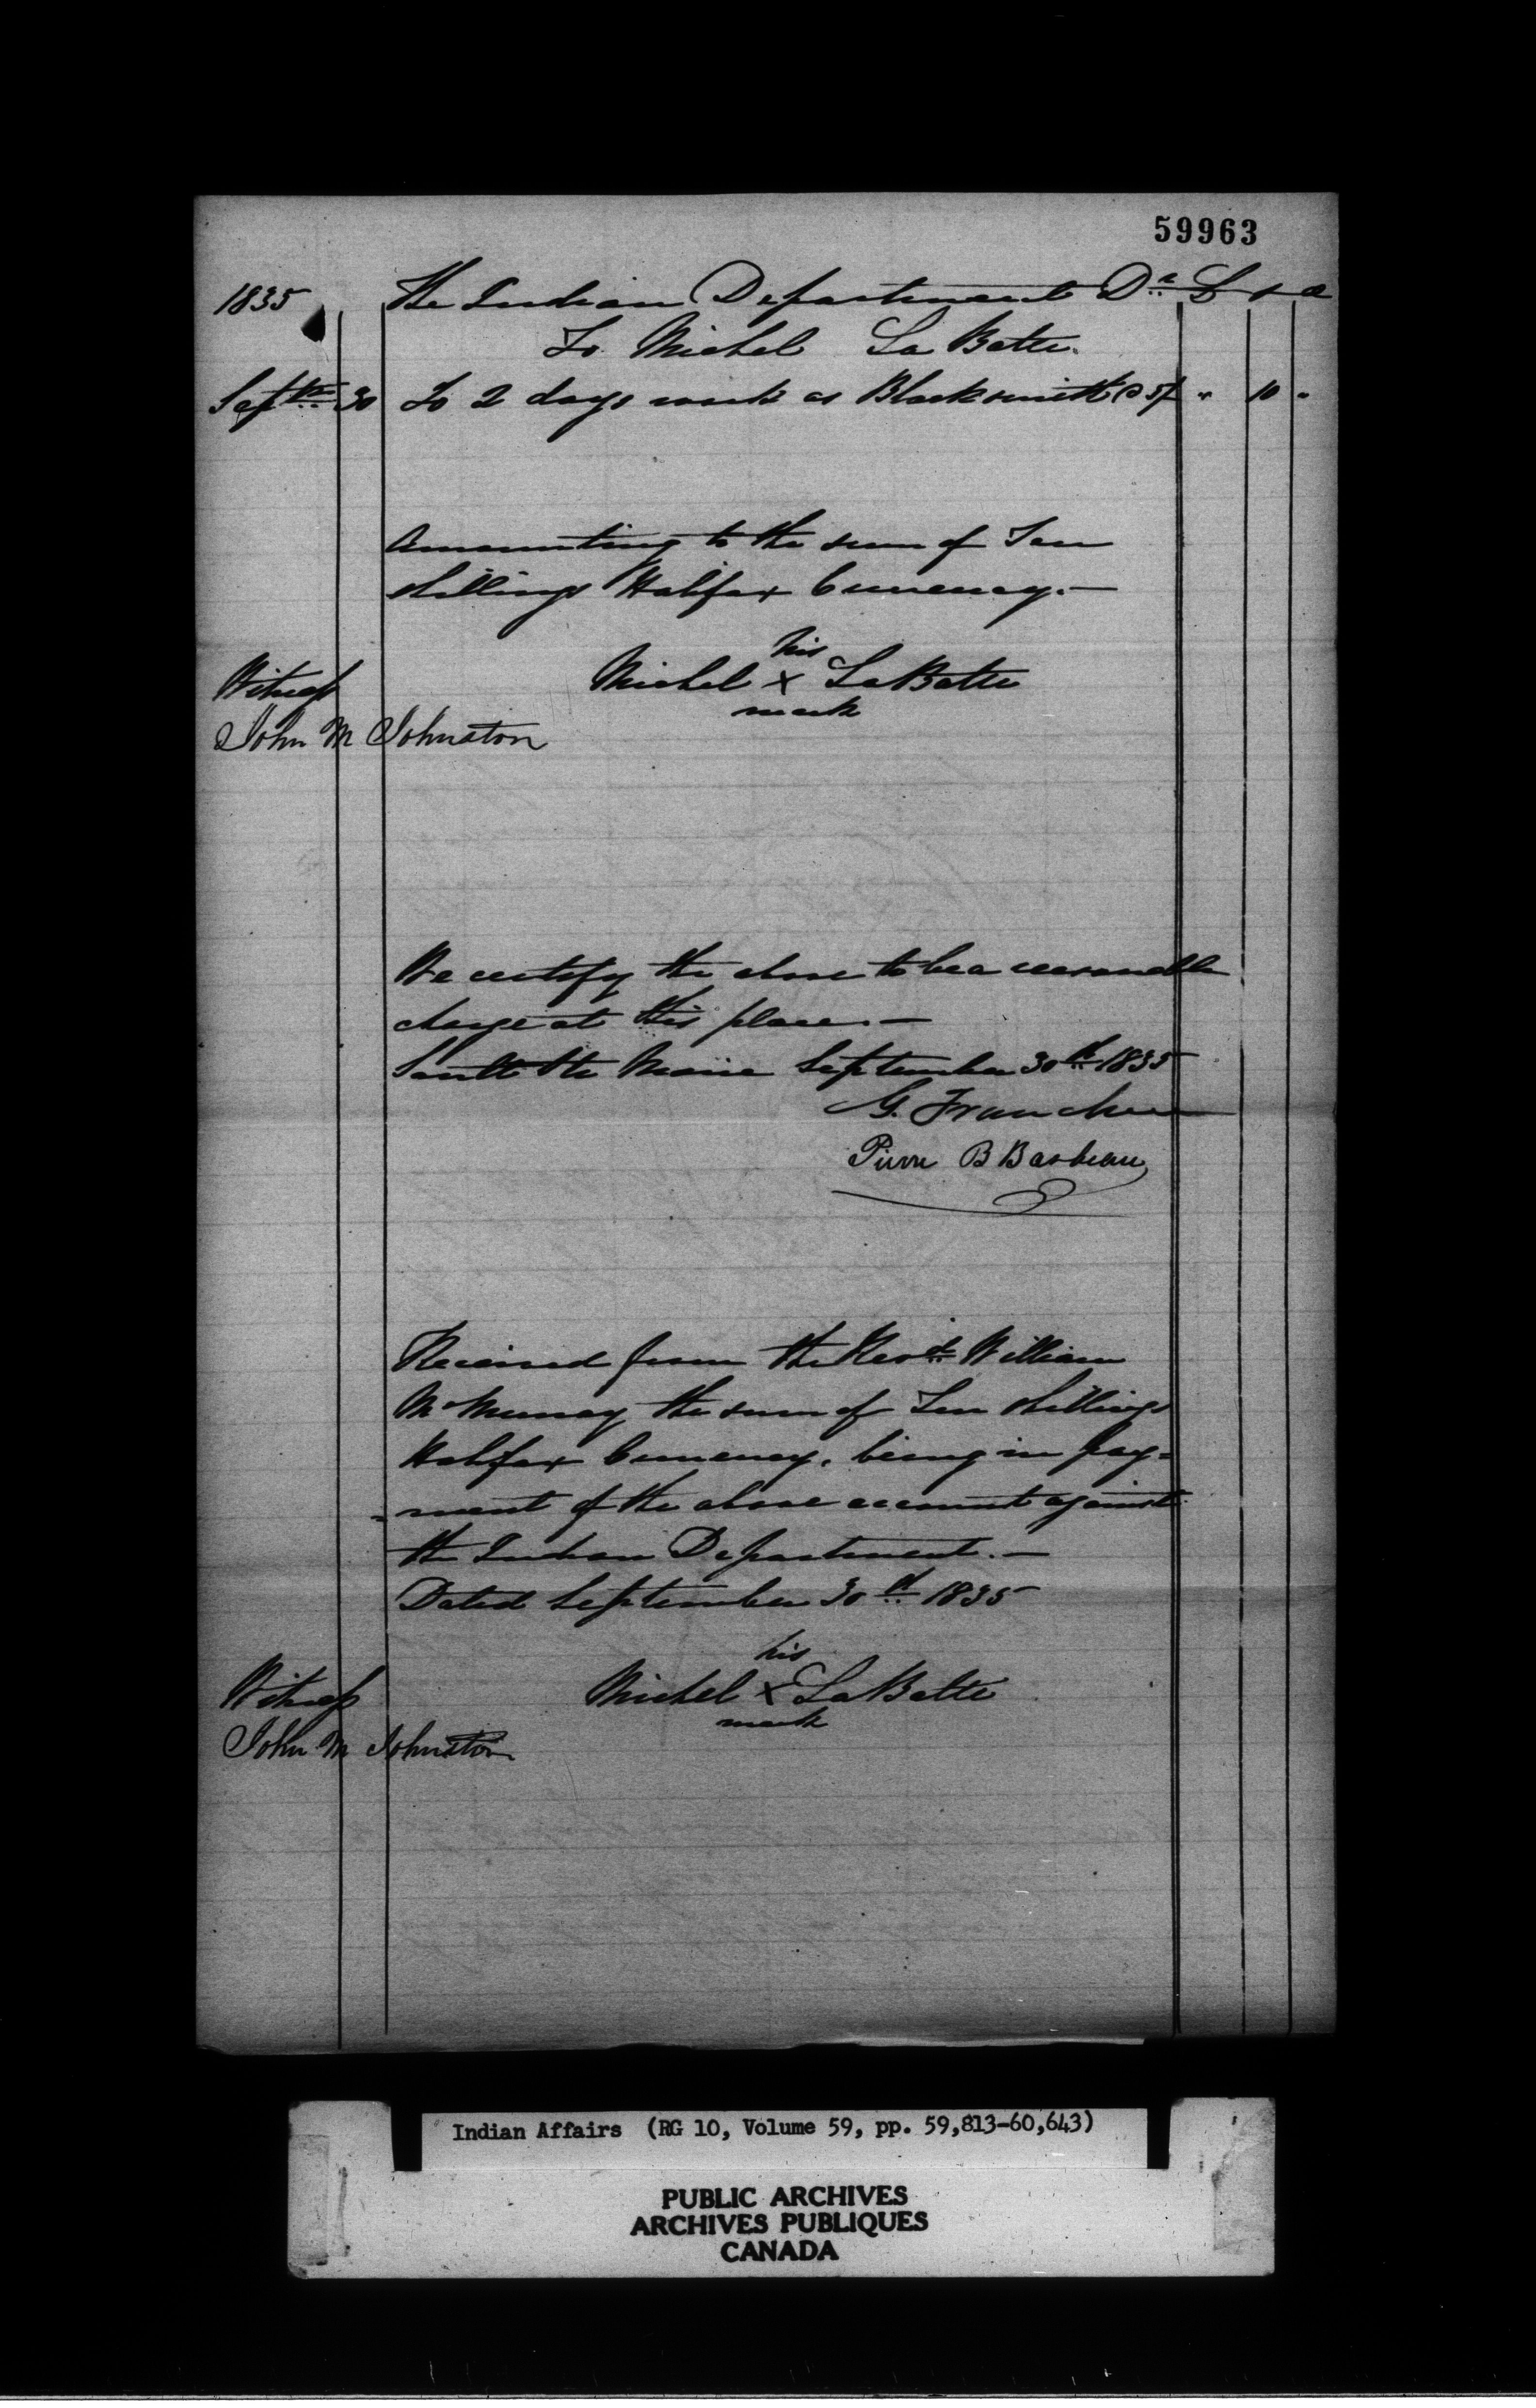 59963
1835 The Indian Department Dr £ s d
To Michel La Batte.
Septr 30 To 2 days work as Blacksmith @ 5/ " 10 "
Amounting to the sum of Ten
shillings Halifax Currency.—
his
Michel x LaBatte
mark
Witness
John M Johnston
We certify the above to be a reasonable
charge at this place.—
Sault Ste Marie September 30th 1835
G. Franchere
Pierre B Barbeau
Received from the Revd William
McMurray the sum of Ten shillings
Halifax Currency, being in pay=
=ment of the above account against
the Indian Department.—
Dated September 30th 1835
his
Michel x LaBatte
mark
Witness
John M Johnston
Indian Affairs (RG 10, Volume 59, pp. 59,813-60,643)
PUBLIC ARCHIVES
ARCHIVES PUBLIQUES
CANADA